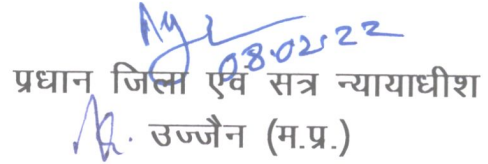 08.02.22
प्रधान जिला एवं सत्र न्यायाधीश
उज्जैन (म.प्र.)